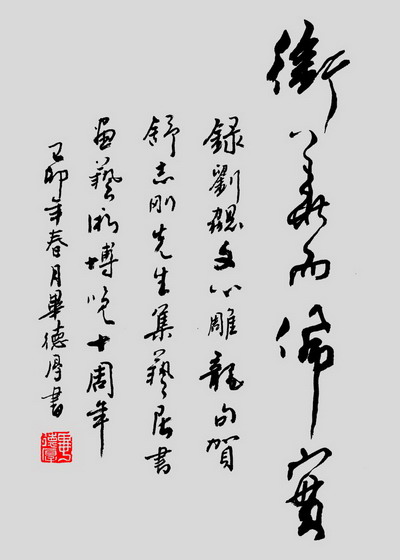 銜華而佩實
録劉勰文心雕龍句賀
舒志剛先生集藝居書
畫藝術博覽十周年
己卯年春月畢德厚書